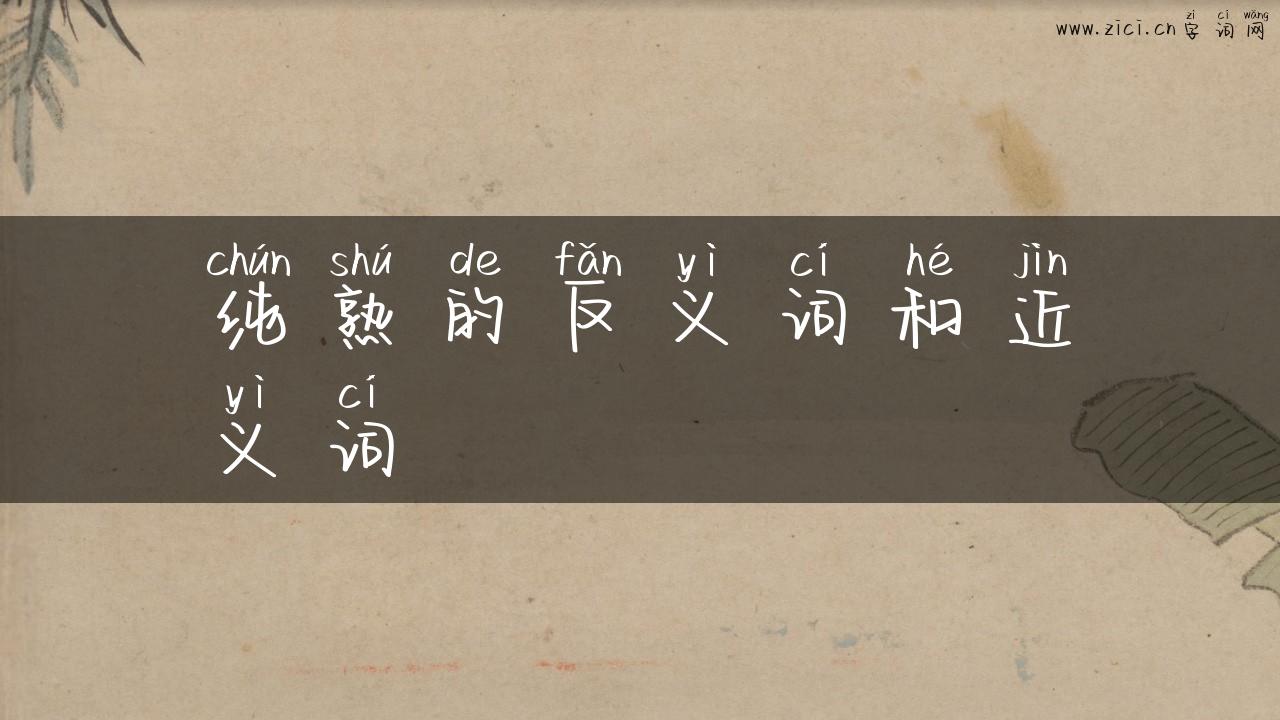 zì cí wǎng
www.zici.cn 字 词 网
chún shú de fǎn yì cí hé jìn
纯 熟 的 反 义 词 和 近
yì cí
义 词